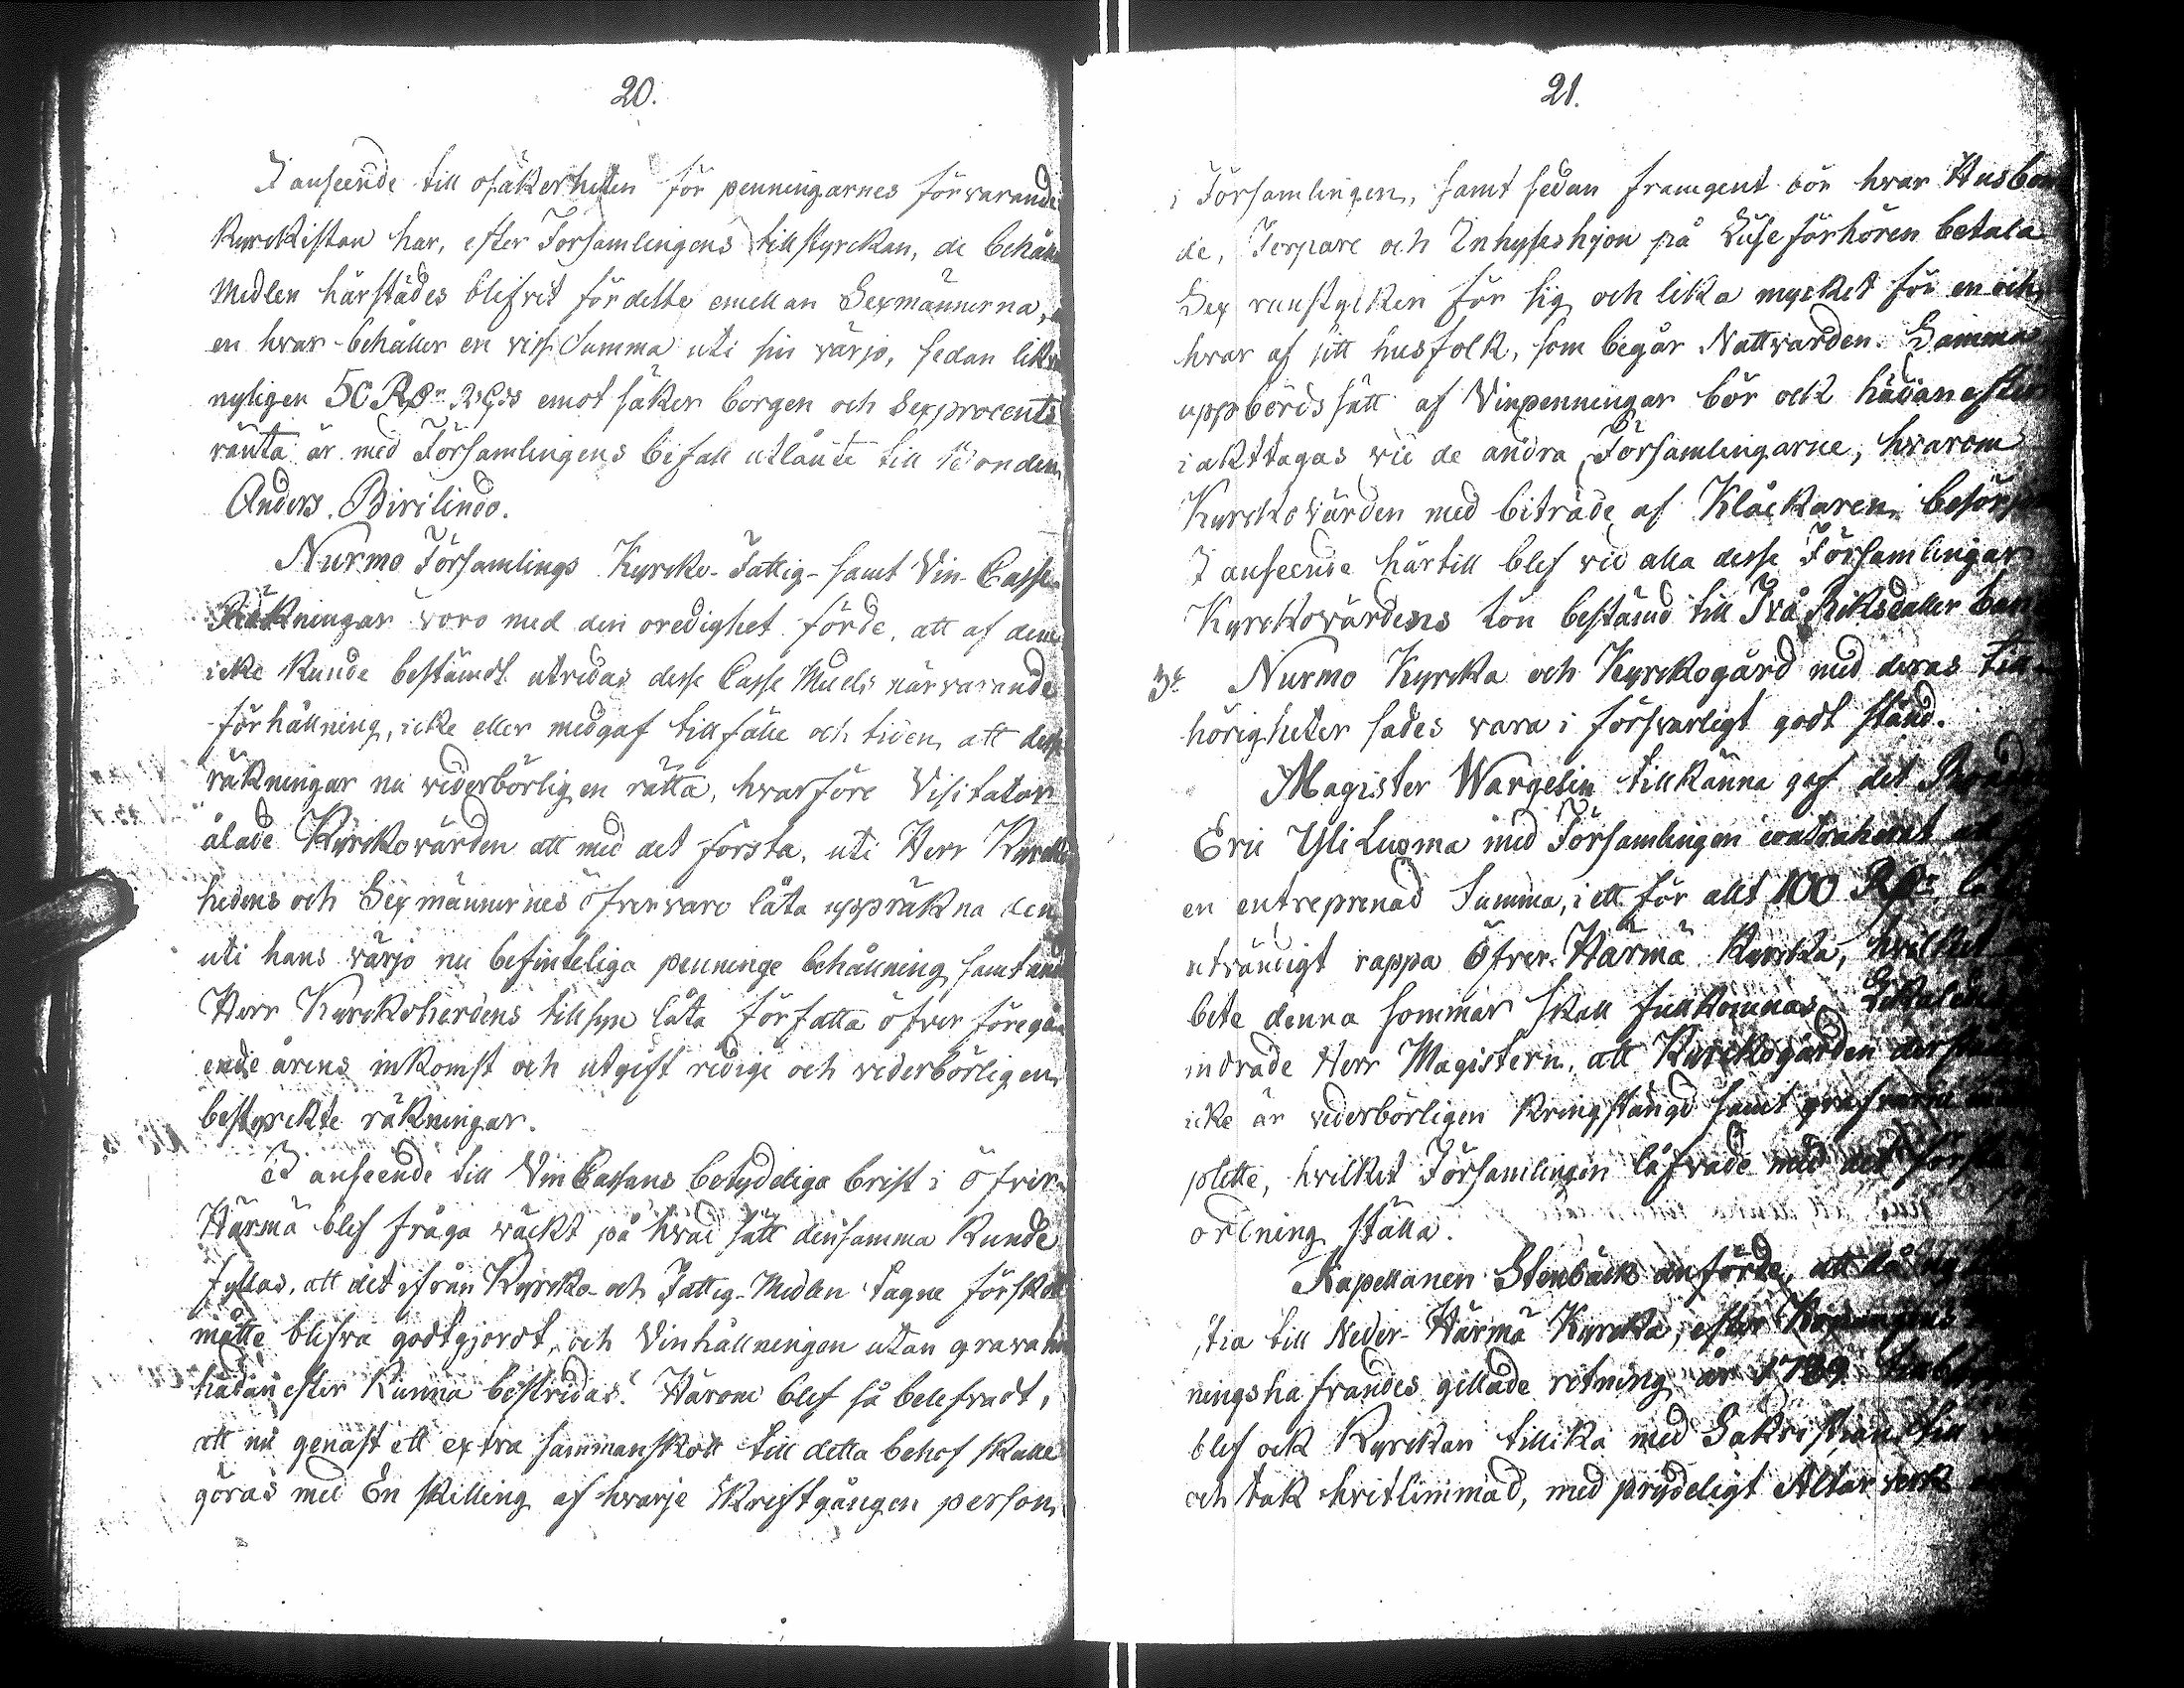 20.
I anseende till osäkerheten för penningarnes förvarande
Kyrckistan har, efter Församlingens tillstyrckan, de behåln
Medlen härstädes blifvit fördelte emellan Sexmännerna,
en hvar behåller en viss Summa uti sin värjo, sedan likv
nyligen 50 Rdr emot säker borgen och Sexprocents
ränta är med Församlingens bifall utlånte till Bonden
Anders Pirilindo.
Nurmo Församlings Kyrcko- Fattig- samt Vin-Casse
Räkningar voro med den oredighet förde, att af dem
icke kunde bestämdt utredas desse Casse Medels närvarande
förhållning, icke eller medgaf tillfälle och tiden att desse
räkningar nu vederbörligen rätta, hvarföre Visitator
ålade Kyrckovärden att med det första, uti Herr Kyrcko
herdens och Sexmännernes öfvervaro låta uppräkna den
uti hans värjo nu befinteliga penninge behållning samt under
Herr Kyrckoherdens tillsyn låta författa öfver föregå
ende årens inkomst och utgift redige och vederbörligen
bestyrckte räkningar.
I anseende till Vin Cassans betydeliga brist i Öfver
Härmä blef fråga väckt på hvad sätt densamma kunde
fyllas, att det ifrån Kyrcko- och Fattig-Medlen tagne förskott
måtte blifva godtgjordt, och Vinhållningen utan grava
hädanefter kunna bestridas? Härom blef så belefvadt,
att nu genast ett extra sammanskott till detta behof skulle
göras med En skilling af hvarje Skriftgången person
21.
i Församlingen, samt sedan framgent bör hvar Husbon
de, Torpare och Inhyseshjon på Läseförhören betala
Sex runstycken för sig och lika mycket för en och
hvar af sitt husfolk, som begår Nattvarden. Samma
uppbördssätt af Vinpenningar bör ock hädanefter
iakttagas vid de andra Församlingarne, hvarom
Kyrckovärden med biträde af Klåckaren besörjer
I anseende härtill blef vid alla desse Församlingar
Kyrckovärdens lön bestämd till Två Riksdaller ban
3e Nurmo Kyrcka och Kyrckogård med deras till-
hörigheter sades vara i försvarligt godt stånd.
Magister Wargelin tillkänna gaf det Bonden
Eric Yli Luoma med Församlingen contraherat
en entreprenad Summa, i ett för allt 100 Rdr
utvändigt rappa Öfver-Härmä Kyrcka, hvilket
bete denna sommar skall fullkomnas.
indrade Herr Magistern, att Kyrckogården
icke är vederbörligen kringstängd samt
plette, hvilket Församlingen låfvade med det första
ordning ställa.
Kapellanen Stenbäck anförde, att då
stia till Neder-Härmä Kyrcka, efter
ningshafvandes gillade ritning år 1789
blef ock Kyrckan tillika med Sakristian till
och tak hvitlimmad, med prydeligt Altar verk